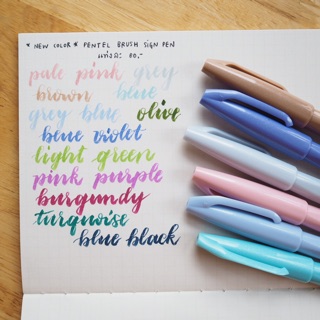 * NEW COLOR * PENTEL BRUSH SIGN PEN
แท่งละ 60.-
pale pink grey
brown blue
grey blue olive
blue violet
light green
pink purple
burgundy
turquoise
blue black